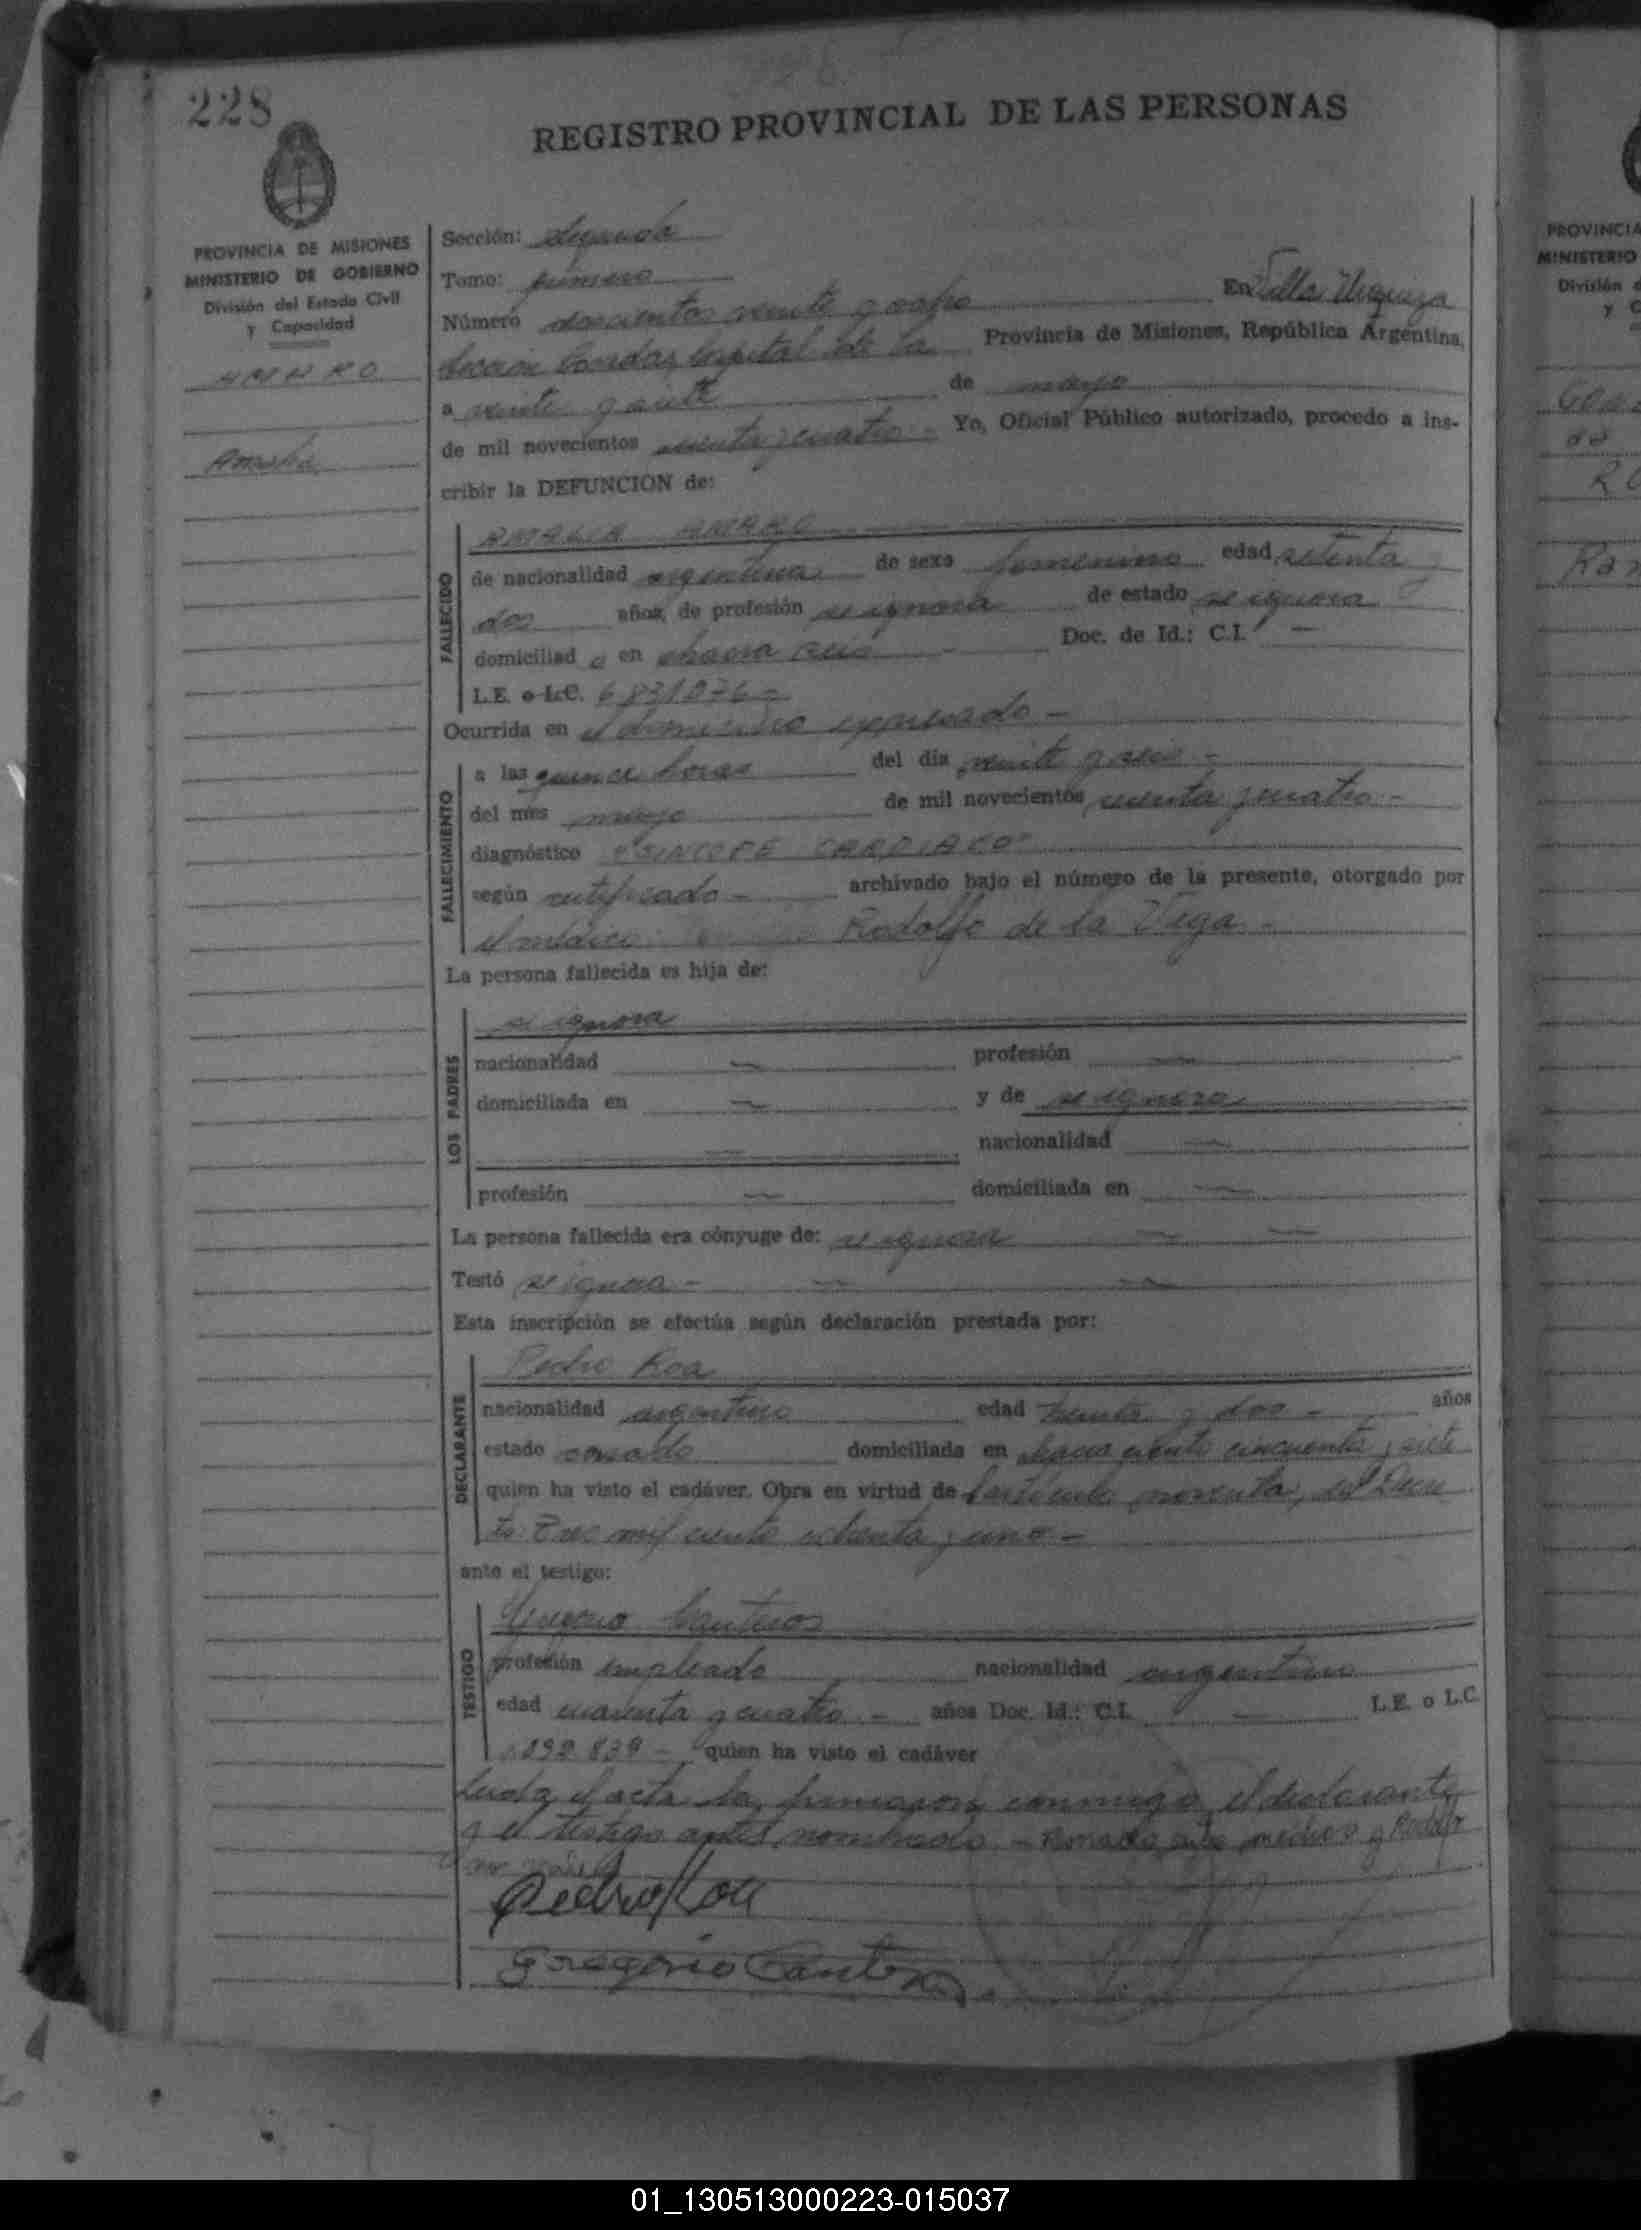 228
REGISTRO PROVINCIAL DE LAS PERSONAS
PROVINCIA DE MISIONES
MINISTERIO DE GOBIERNO
División del Estado Civil
y Capacidad
AMARO
Amalia
Sección: segunda
Tomo: primero
Número doscientos veinte y ocho En Villa Urquiza
Sección Posadas, Capital de la Provincia de Misiones, República Argentina,
a veinte y siete de mayo
de mil novecientos sesenta y cuatro - Yo, Oficial Público autorizado, procedo a ins-
cribir la DEFUNCION de:
FALLECIDO
AMALIA AMARO
de nacionalidad argentina de sexo femenino edad setenta y
dos años, de profesión se ignora de estado se ignora
domiciliad a en chacra seis - Doc. de Id.: C.I. —
L.E. o L.C. 6831076 -
Ocurrida en el domicilio expresado -
FALLECIMIENTO
a las quince horas del día veinte y seis -
del mes mayo de mil novecientos sesenta y cuatro -
diagnóstico "SINCOPE CARDIACO"
según certificado - archivado bajo el número de la presente, otorgado por
el médico Rodolfo de la Vega -
La persona fallecida es hija de:
LOS PADRES
se ignora
nacionalidad — profesión —
domiciliada en — y de se ignora
— nacionalidad —
profesión — domiciliada en —
La persona fallecida era cónyuge de: se ignora — —
Testó se ignora - — —
Esta inscripción se efectúa según declaración prestada por:
DECLARANTE
Pedro Roa
nacionalidad argentino edad treinta y dos - años
estado casado domiciliada en chacra ciento cincuenta y siete
quien ha visto el cadáver. Obra en virtud de artículo noventa, del Decre
to: Tres mil ciento ochenta y uno -
ante el testigo:
TESTIGO
Gregorio Canteros
profesión empleado nacionalidad argentino
edad cuarenta y cuatro - años Doc. Id.: C.I. — L.E. o L.C.
092.839 - quien ha visto el cadáver
Leida el acta la firmaron conmigo, el declarante
y el testigo antes nombrado. - médico y Rodolfo
Pedro Roa
Gregorio Canteros
PROVINCIA
MINISTERIO
División d
y C
01_130513000223-015037